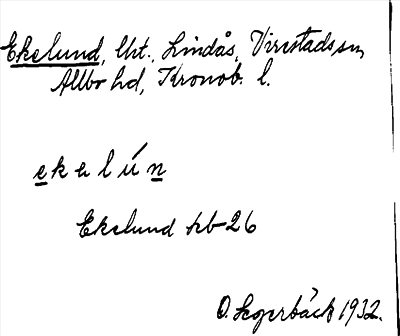 Ekelund, lht., Lindås, Virestads sn,
Allbo hd, Kronob. l.
ekelún
Ekelund kb 26
O. 1932.